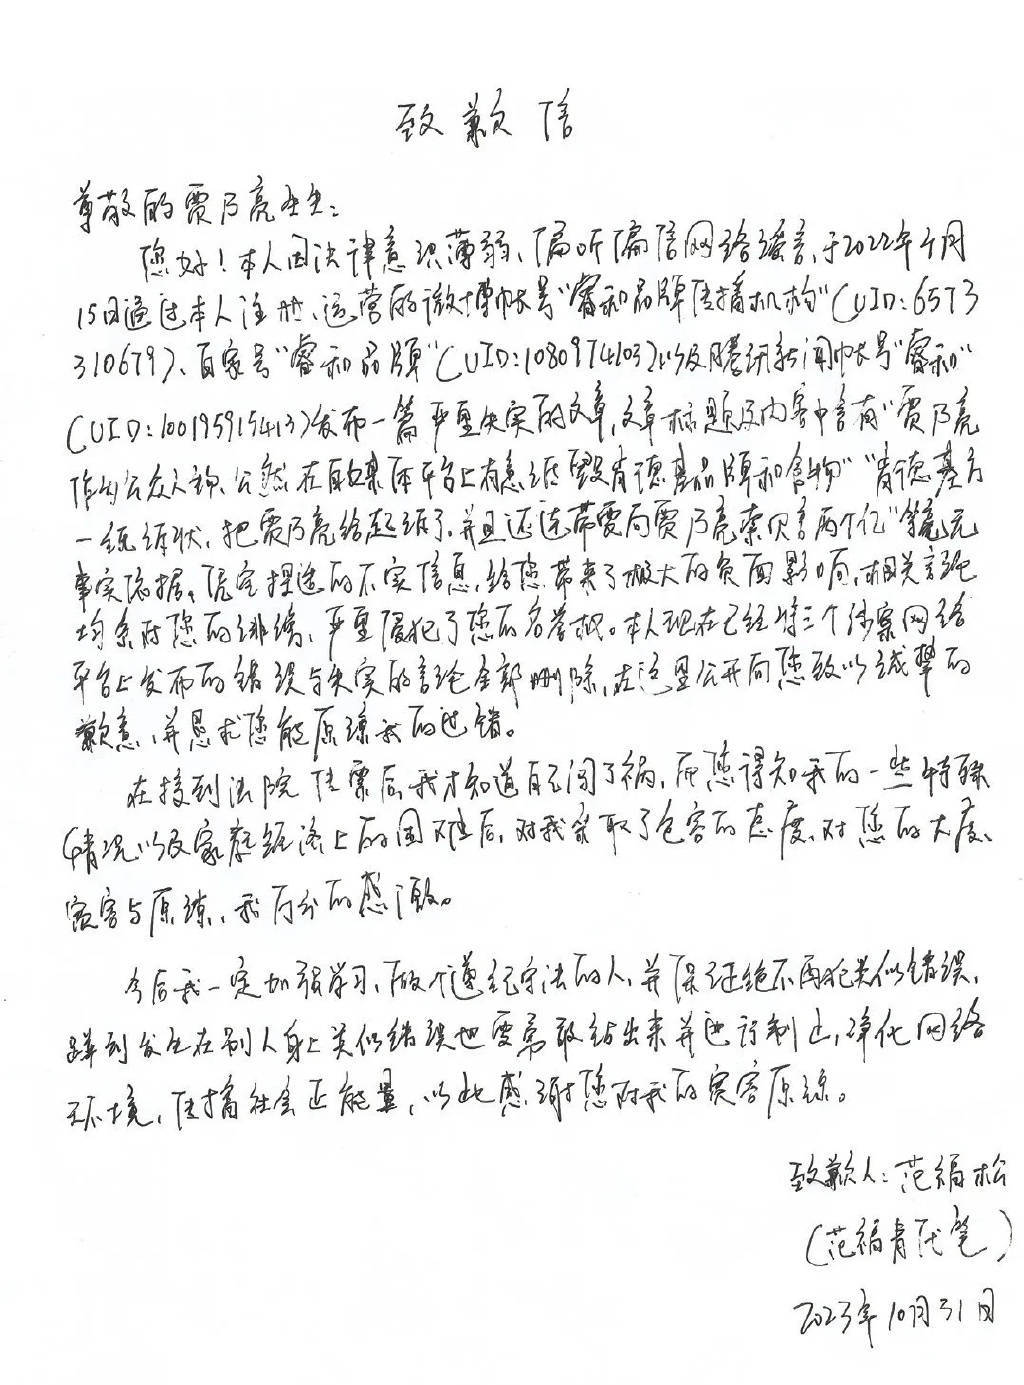 致歉信
尊敬的贾乃亮先生:
您好!本人因法律意识薄弱、偏听偏信网络谣言,于2022年7月
15日通过本人注册、运营的微博帐号“睿和品牌传播机构”(UID:6573
310679)、百家号“睿和品牌”(UID:1080974103)以及腾讯新闻帐号“睿和”
(UID:1001959195413)发布一篇严重失实的文章,文章标题及内容中含有“贾乃亮
作为公众人物、公然在自媒体平台上有意诋毁肯德基品牌和食物”“肯德基方
一纸诉状,把贾乃亮给起诉了,并且还连带要向贾乃亮索赔两个亿”等毫无
事实依据、凭空捏造的不实信息,给您带来了极大的负面影响,相关言论
均系对您的诽谤、严重侵犯了您的名誉权。本人现在已经将三个涉案网络
平台上发布的错误与失实的言论全部删除,在这里公开向您致以诚挚的
歉意,并恳求您能原谅我的过错。
在接到法院传票后,我才知道自己闯了祸,而您得知我的一些特殊
情况以及家庭经济上的困难后,对我采取了包容的态度,对您的大度、
宽容与原谅,我万分的感激。
今后我一定加强学习,做个遵纪守法的人,并保证绝不再犯类似错误,
碰到发生在别人身上类似错误也要勇敢站出来并进行制止,净化网络
环境,传播社会正能量,以此感谢您对我的宽容原谅。
致歉人:范福松
(范福青代笔)
2023年10月31日